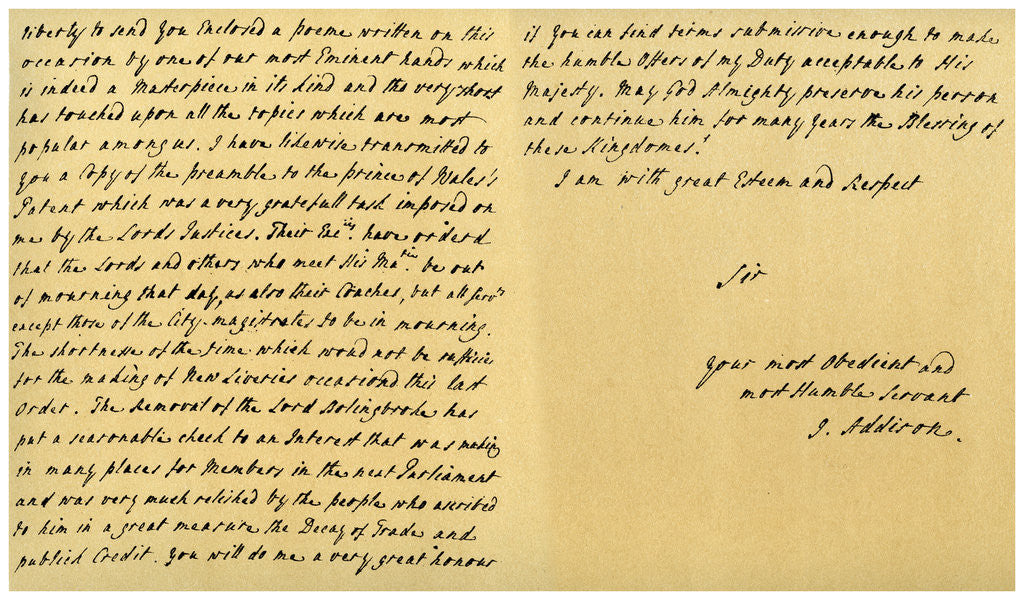 liberty to send you Enclosed a poeme written on this
occasion by one of our most Eminent hands which
is indeed a Masterpiece in its kind and tho very short
has touched upon all the topics which are most
popular among us. I have likewise transmitted to
you a Copy of the preamble to the prince of Wales's
Patent which was a very gratefull task imposed on
me by the Lords Justices. Their Exc:ies have orderd
that the Lords and others who meet His Ma:tie be out
of mourning that day, as also their Coaches, but all Serv:ts
except those of the City-magistrates to be in mourning.
The shortnesse of the time which woud not be sufficient
for the making of New Liveries occasiond this last
Order. The Removal of the Lord Bolingbroke has
put a seasonable check to an Interest that was making
in many places for Members in the next Parliament
and was very much relished by the people who ascribed
to him in a great measure the Decay of Trade and
publick Credit. You will do me a very great honour
if you can find terms submissive enough to make
the humble Offers of my Duty acceptable to His
Majesty. May God Almighty preserve his person
and continue him for many years the Blessing of
these Kingdomes!
I am with great Esteem and Respect
Sir
your most Obedient and
most Humble Servant
J. Addison.